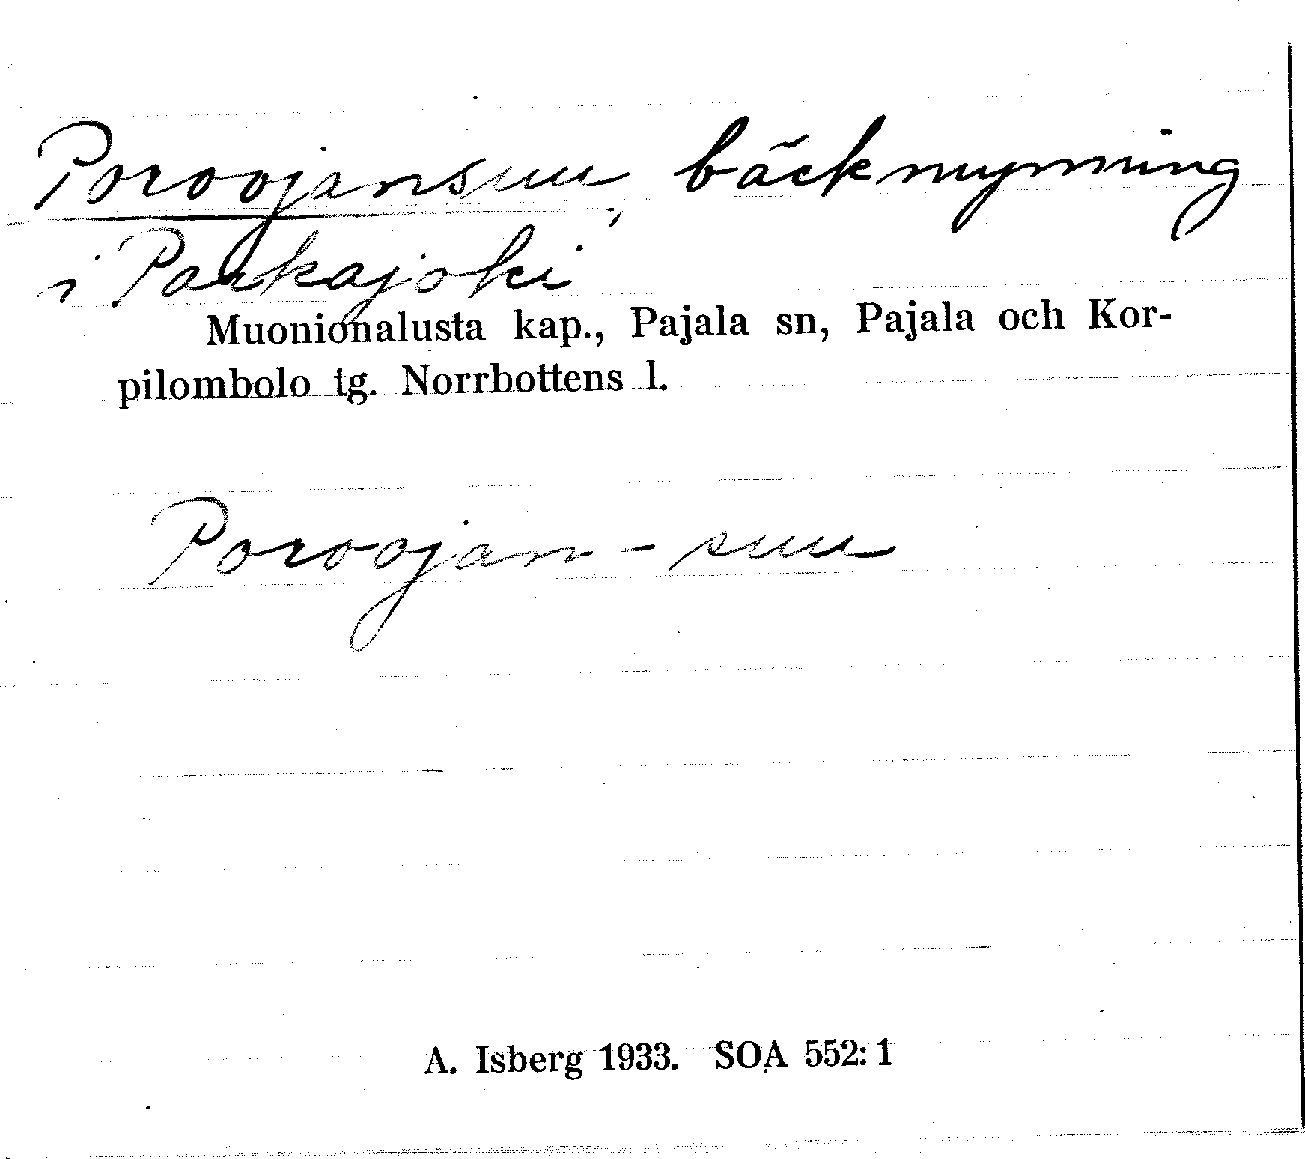 Poroojansuu, bäckmynning
i Parkajoki
Muonionalusta kap., Pajala sn, Pajala och Kor-
pilombolo tg. Norrbottens l.
Poroojan-suu
A. Isberg 1933. SOA 552:1